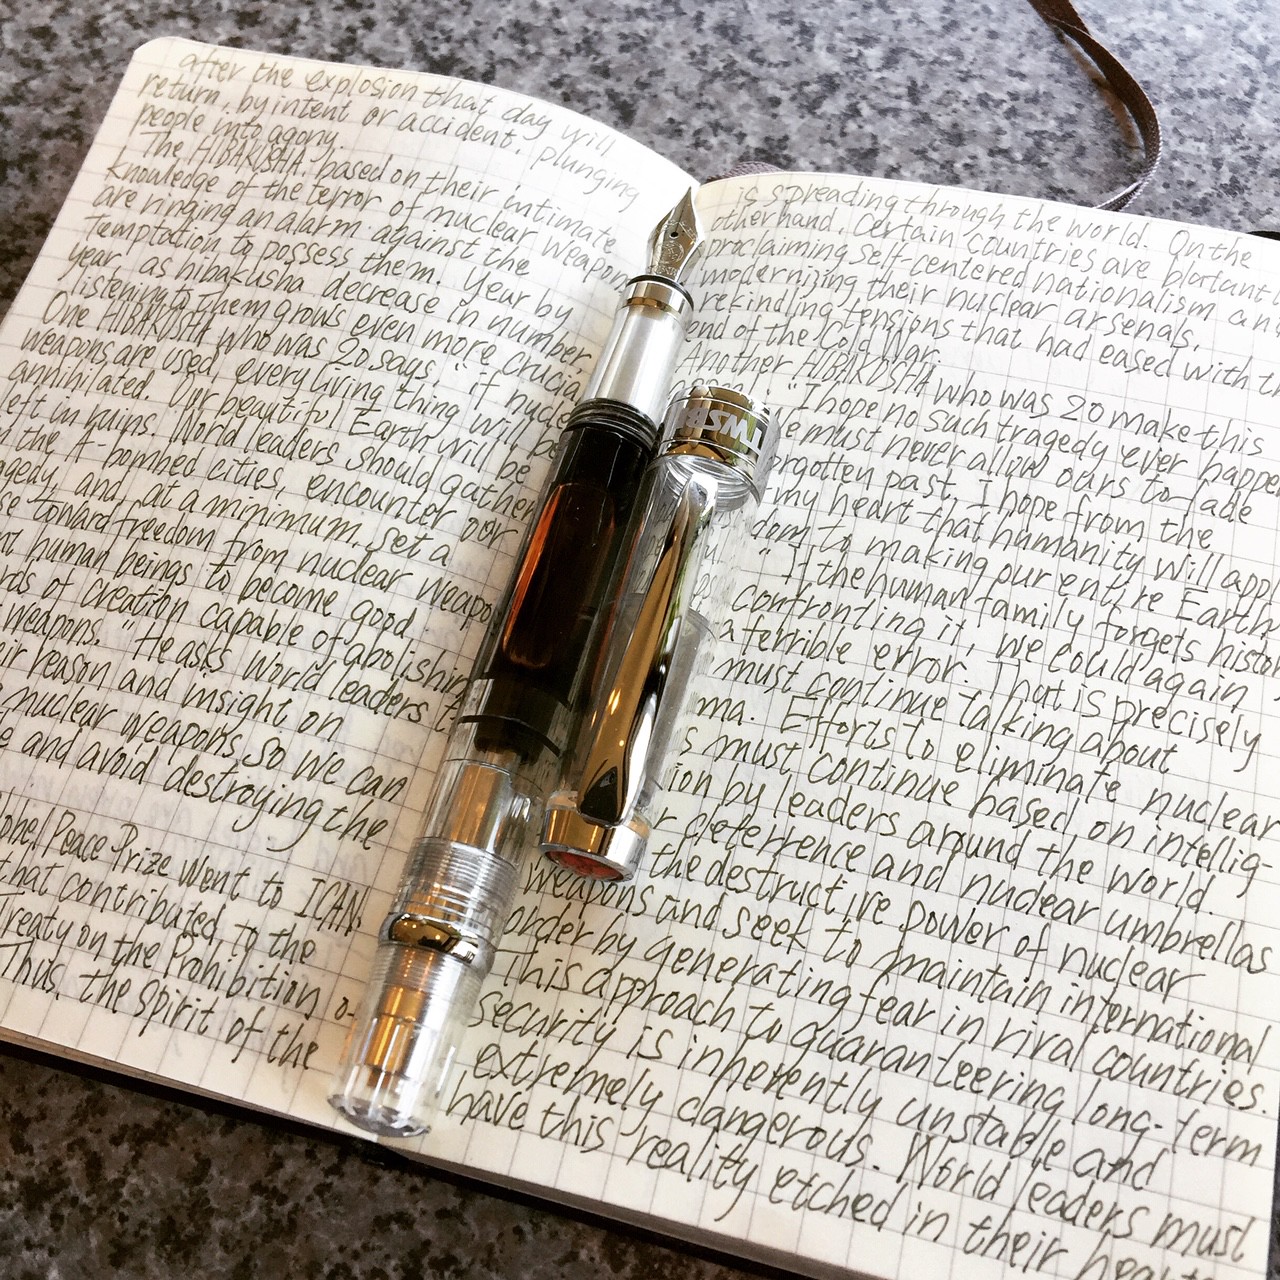 after the explosion that day will
return, by intent or accident, plunging
people into agony.
The HIBAKUSHA, based on their intimate
knowledge of the terror of nuclear weapon
are ringing an alarm against the
temptation to possess them. Year by
year, as hibakusha decrease in number,
listening to them grows even more crucia
One HIBAKUSHA who was 20 says, "if nucle
weapons are used, every living thing will be
annihilated. Our beautiful Earth will be
left in ruins. World leaders should gather
the A-bombed cities, encounter our
agedy, and, at a minimum, set a
se toward freedom from nuclear weapon
human beings to become good
rds of creation capable of abolishing
weapons." He asks world leaders t
eir reason and insight on
nuclear weapons so we can
e and avoid destroying the
obel Peace Prize went to ICAN,
that contributed to the
Treaty on the Prohibition o
Thus, the spirit of the
is spreading through the world. On the
other hand, certain countries are blatant
proclaiming self-centered nationalism an
modernizing their nuclear arsenals,
rekindling tensions that had eased with th
end of the Cold War.
Another HIBAKUSHA who was 20 make this
"I hope no such tragedy ever happen
e must never allow ours to fade
orgotten past. I hope from the
my heart that humanity will appl
dom to making our entire Earth
" If the human family forgets histor
confronting it, we could again
a terrible error. That is precisely
must continue talking about
ma. Efforts to eliminate nuclear
s must continue based on intellig-
ion by leaders around the world.
r deterrence and nuclear umbrellas
the destructive power of nuclear
weapons and seek to maintain international
order by generating fear in rival countries.
This approach to guaranteeing long-term
security is inherently unstable and
extremely dangerous. World leaders must
have this reality etched in their heart
TWSBI